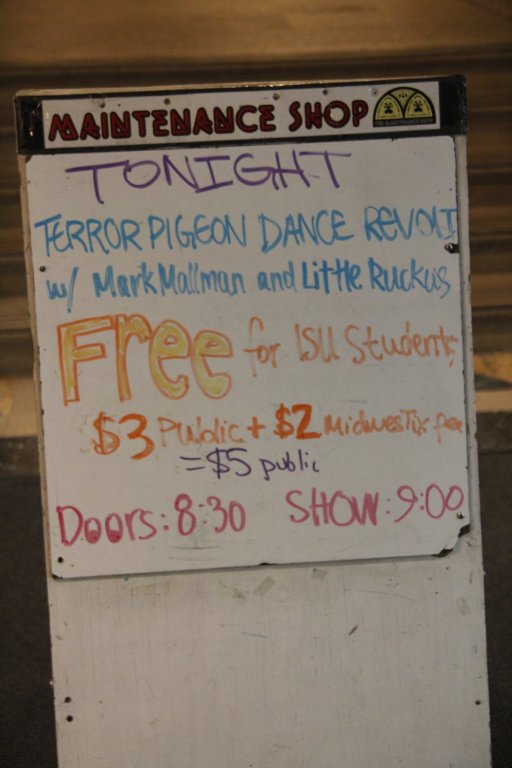 MAINTENANCE SHOP
TONIGHT
TERROR PIGEON DANCE REVOLT
w/ Mark Mallman and Little Ruckus
FREE for ISU Students
$3 Public + $2 midwestix fee
= $5 public
Doors: 8:30 SHOW: 9:00